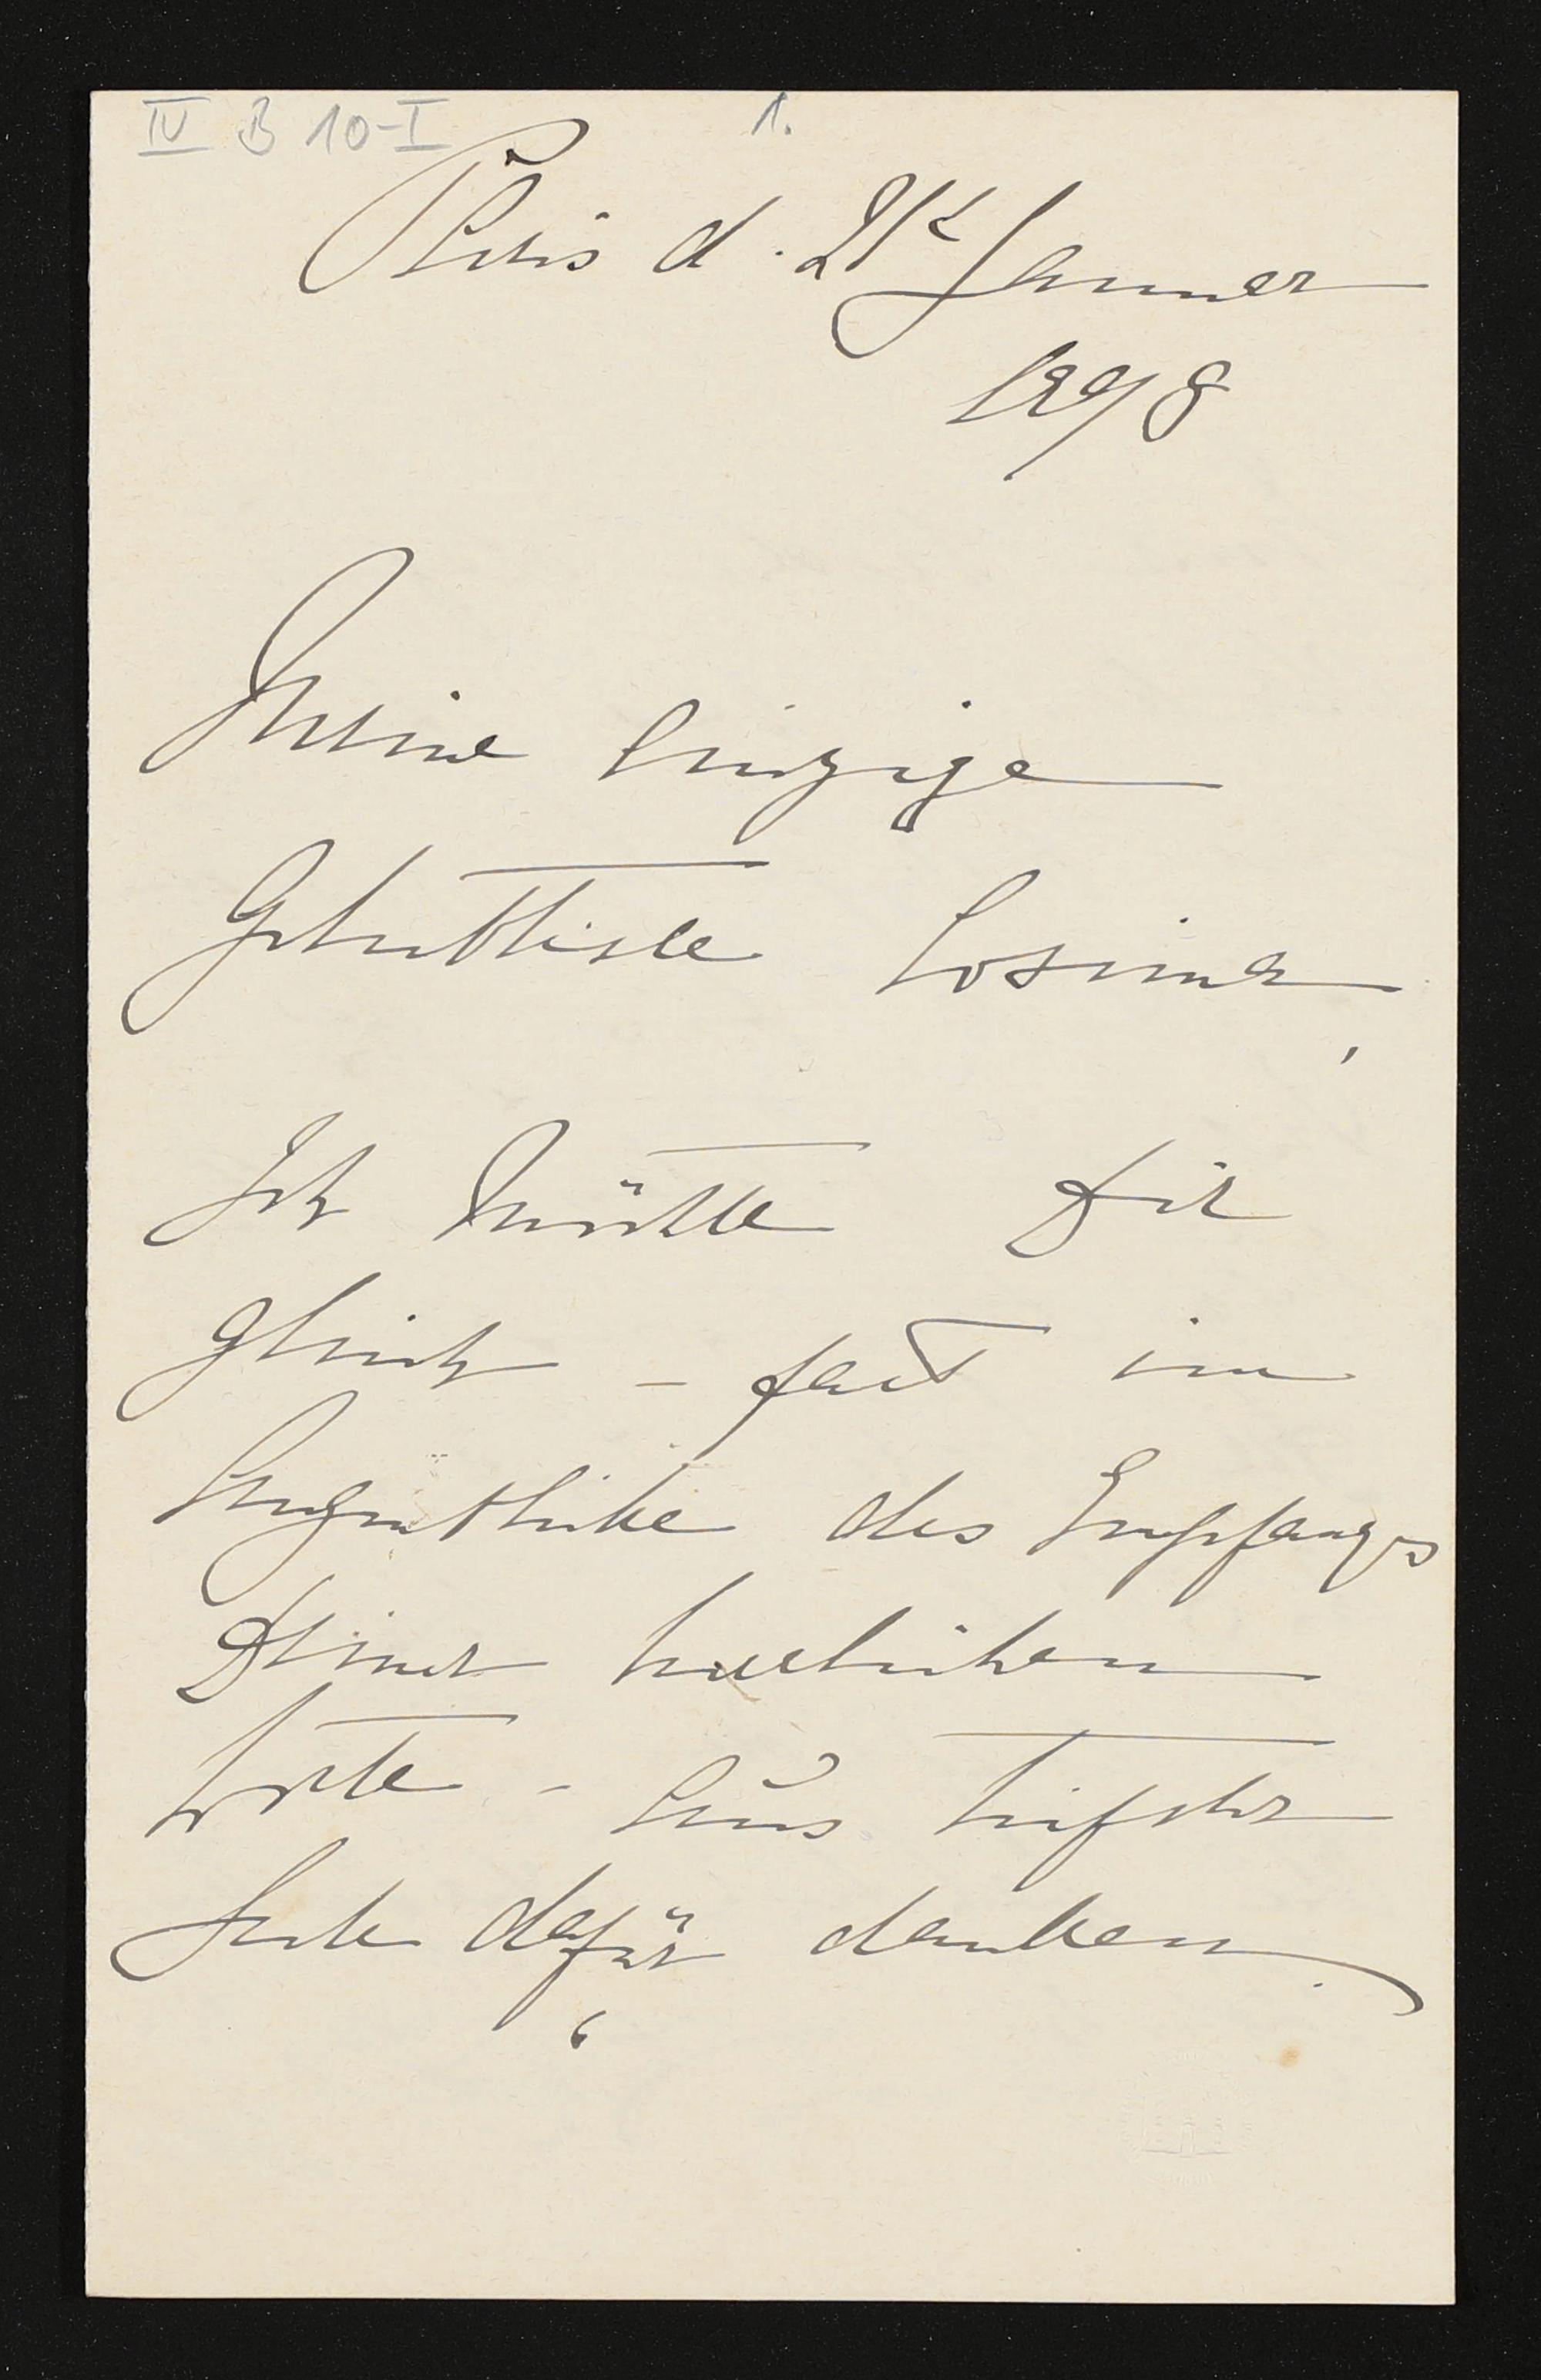 IV B 10-I 1.
Paris d. 21t Januar
1898
Meine einzige
Geliebteste Cosima,
Ich möchte Dir
gleich – fast im
Augenblicke des Empfanges
Deiner herrlichen
Worte – aus tiefster
Seele dafür danken